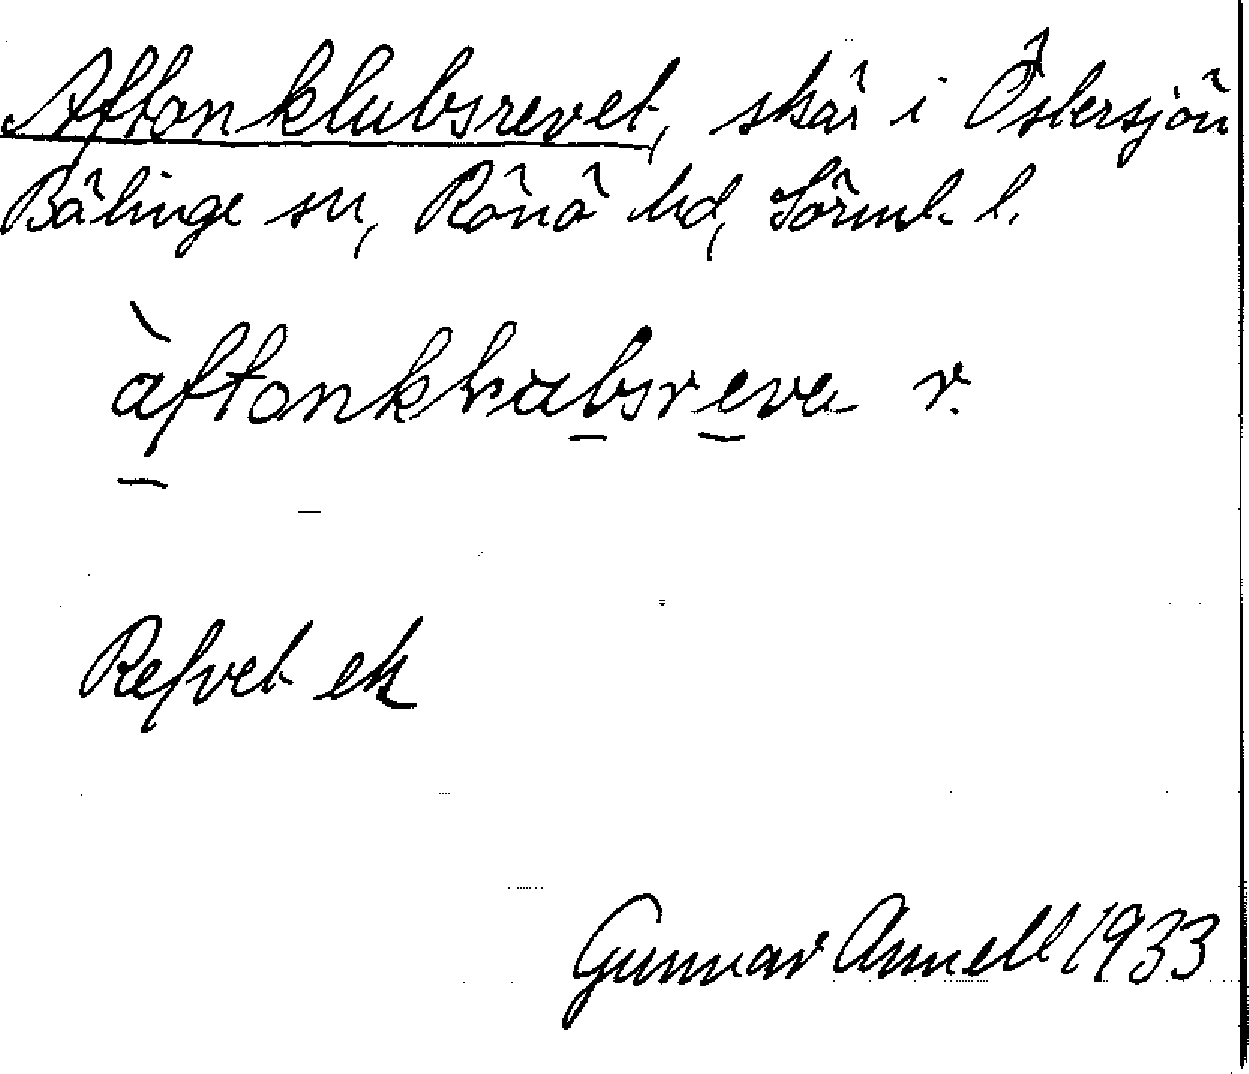 Aftonklubsrevet, skär i Östersjön
Bälinge sn, Rönö hd, Sörml. l.
àftonkl​ubsreve r.
Refvet ek
Gunnar Annell 1933